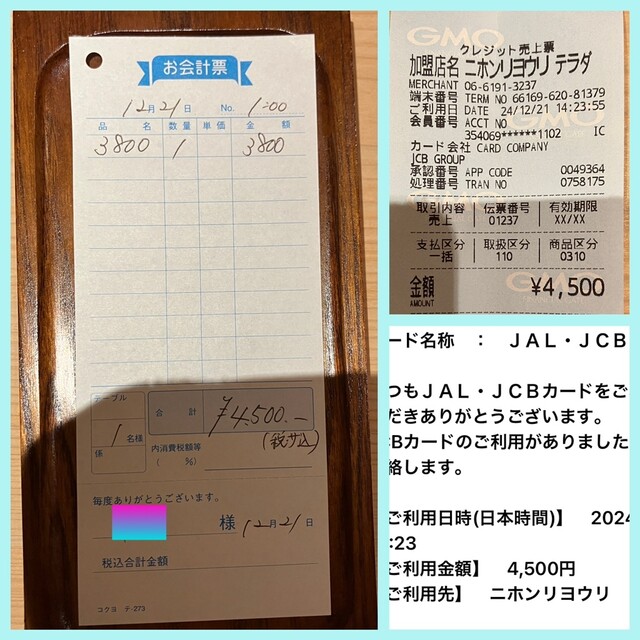 お会計票
12月21日 No. 1:00
品名 数量 単価 金額
3800 1 3800
テーブル
合計 ¥4,500.—
(税サ込)
1名様
係
内消費税額等
( %)
毎度ありがとうございます。
様 12月21日
税込合計金額
コクヨ テ-273
GMO
クレジット売上票
加盟店名 ニホンリヨウリ テラダ
MERCHANT 06-6191-3237
端末番号 TERM NO 66169-620-81379
ご利用日 DATE 24/12/21 14:23:55
会員番号 ACCT NO
354069******1102 IC
カード会社 CARD COMPANY
JCB GROUP
承認番号 APP CODE 0049364
処理番号 TRAN NO 0758175
取引内容 伝票番号 有効期限
売上 01237 XX/XX
支払区分 取扱区分 商品区分
一括 110 0310
GMO
金額 ¥4,500
AMOUNT
ード名称 : JAL・JCB
つもJAL・JCBカードをご
だきありがとうございます。
CBカードのご利用がありました
絡します。
ご利用日時(日本時間)】 2024
:23
ご利用金額】 4,500円
ご利用先】 ニホンリヨウリ